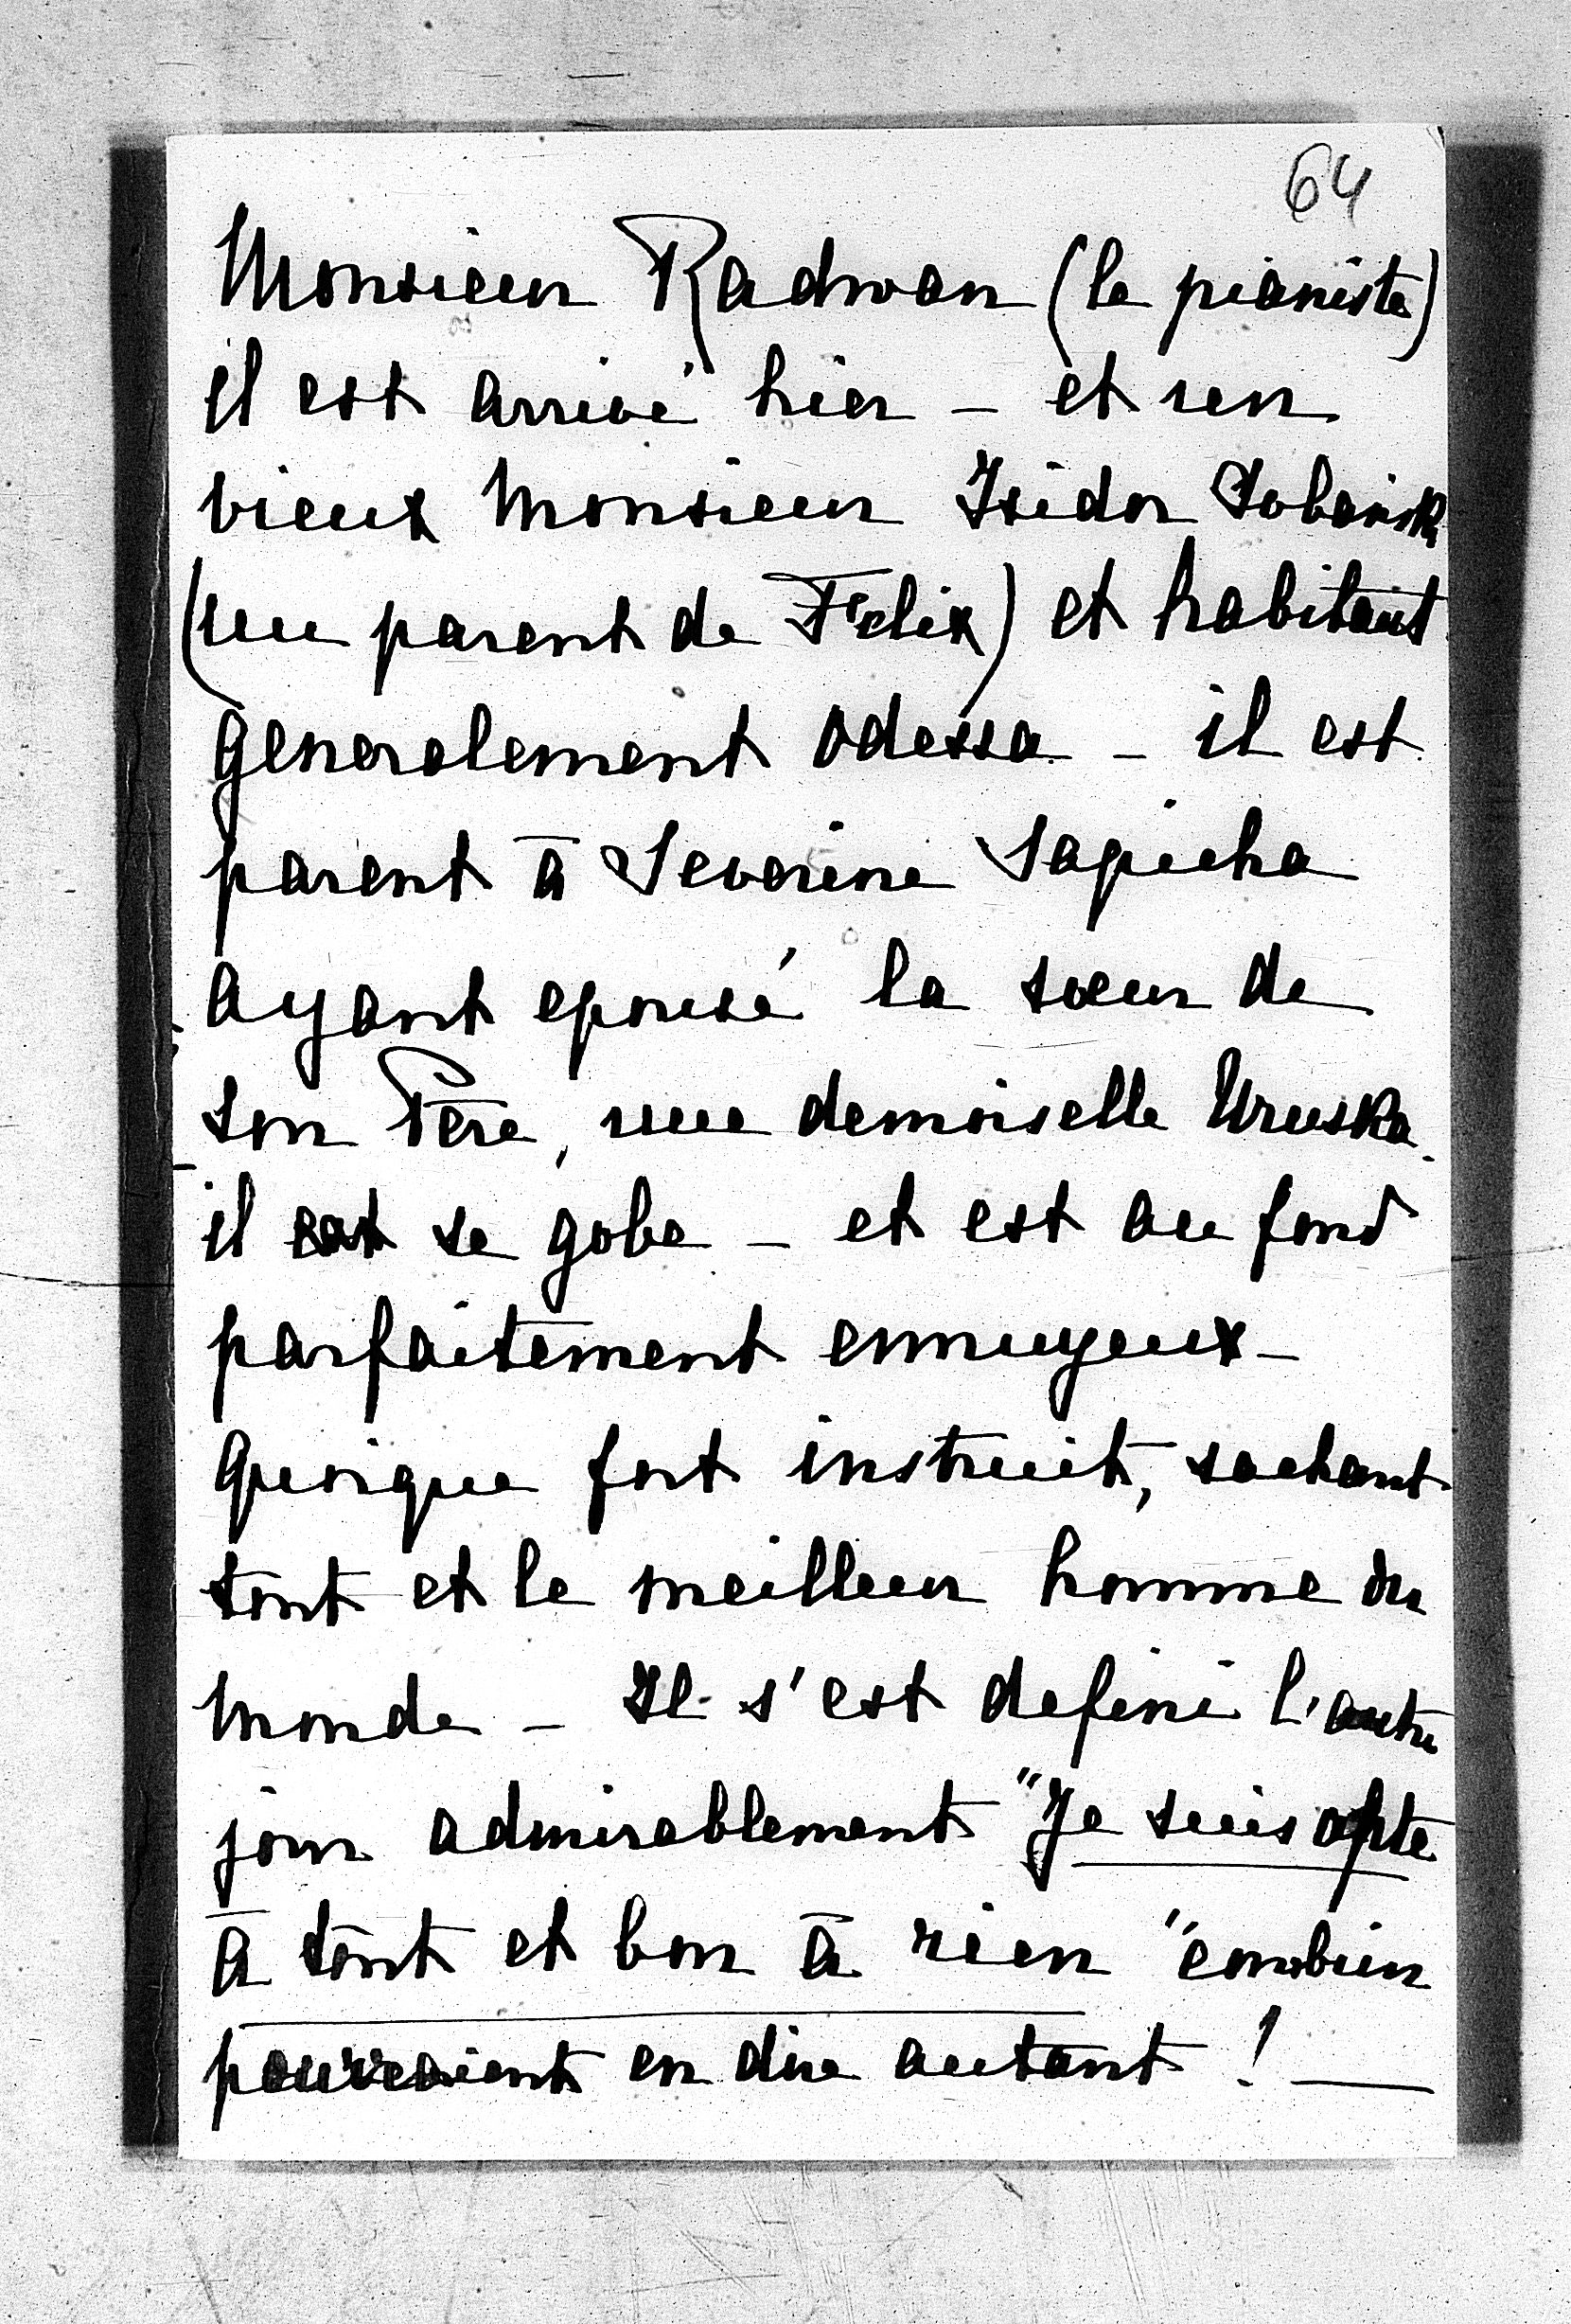 64
Monsieur Radwan (le pianiste)
il est arrivé hier – et un
vieux Monsieur Isidor Sobański
(un parent de Felix) et habitant
generalement Odessa – il est
parent à Severine Sapieha
ayant epousé la sœur de
son Père, une demoiselle Uruska.
il est se gobe – et est au fond
parfaitement ennuyeux –
Quoique fort instruit, sachant
tout et le meilleur homme du
monde – Il s'est defini l'autre
jour admirablement "Je suis apte
à tout et bon à rien" combien
pourraient en dire autant ! —